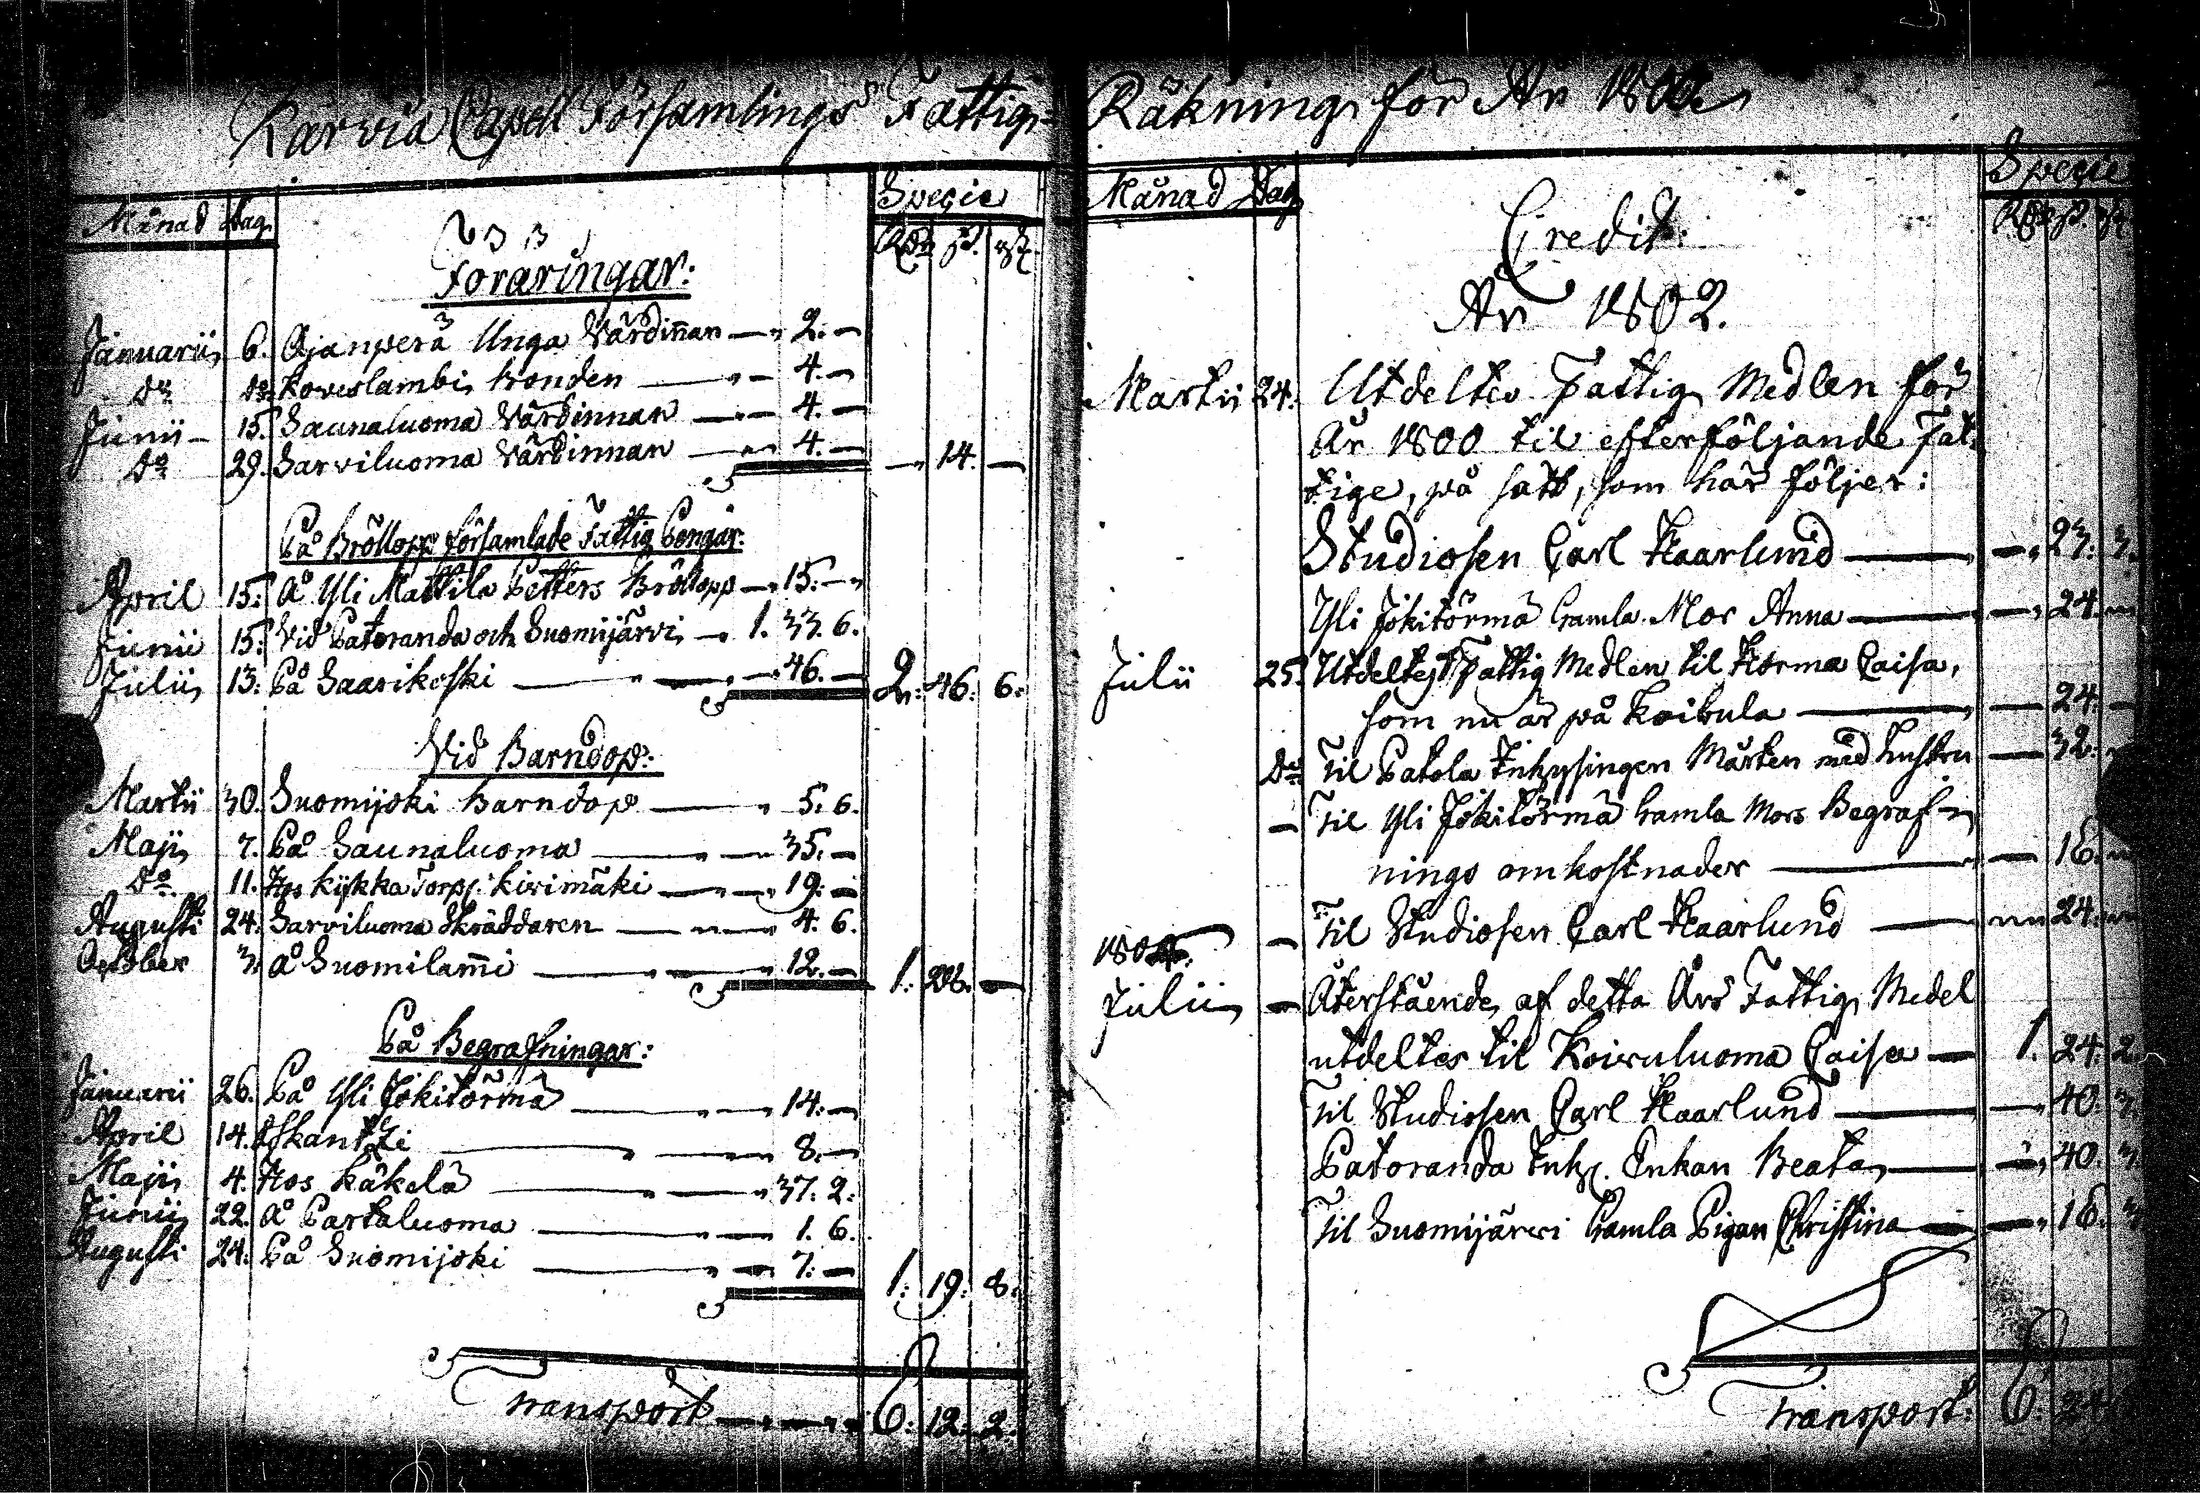 Karvia Capell Församlings Fattig-
Månad Dag. Specie
Rdr ß. rst.
Föräringar:
Januarii 6. Ojanperä Unga Värdinnan — 2. —
do do Koveslambi bonden — 4. —
Junii — 15. Saunaluoma Värdinnan — 4. —
do 29. Sarviluoma Värdinnan — 4. — — 14. —
På Bröllopp församlade Fattig Pengar:
April 15: å Yli Mattila Petters Bröllopp — 15. —
Junii 15: Vid Patoranda och Suomijärvi — 1. 33. 6.
Julii 13: På Saarikoski — 46. — 2: 46: 6:
Vid Barndop:
Martii 30. Suomijoki barndop — 5. 6.
Maji 7. På Saunaluoma — 35. —
do 11. Hos Kykka Torp. Kivimäki — 19: —
Augusti 24. Sarviluoma Skräddaren — 4. 6.
October 3. å Suomilam̄i — 12. — 1: 28. —
På Begrafningar:
Januarii 26. På Yli Jokitörmä — 14: —
April 14. å Skantzi — 8. —
Maji 4. Hos Käkelä — 37: 2:
Junii 22. å Partaluoma — 1. 6.
Augusti 24. På Suomijoki — 7: — 1: 19: 8:
Transport — 6: 12. 2.
Räkning för År
Månad Dag Specie
Credit:
År 1802.
Martii 24. Utdeltes Fattig Medlen för
år 1800 til efterföljande Fat-
tige, på sätt, som här följer:
Studiosen Carl Haarlund — 23: 3.
Yli Jokitörmä Gamla Mor Anna — 24. —
Julii 25. Utdeltes Fattig Medlen til Horma Caisa,
som nu är på Koibula — 24. —
do Til Patola Inhysingen Mårten med hustru — 32.
— Til Yli Jokitörmä Gamla Mors Begraf-
nings omkostnader — 16.
— Til Studiosen Carl Haarlund — 24.
Julii — Återstående af detta Års Fattig Medel
utdeltes til Koivuluoma Caisa — 1. 24. 2.
Til Studiosen Carl Haarlund — 40. 3
Patoranda Inh. Enkan Beata — 40. 3
Til Suomijärvi Gamla Pigan Christina — 16. 3
Transport: 6.